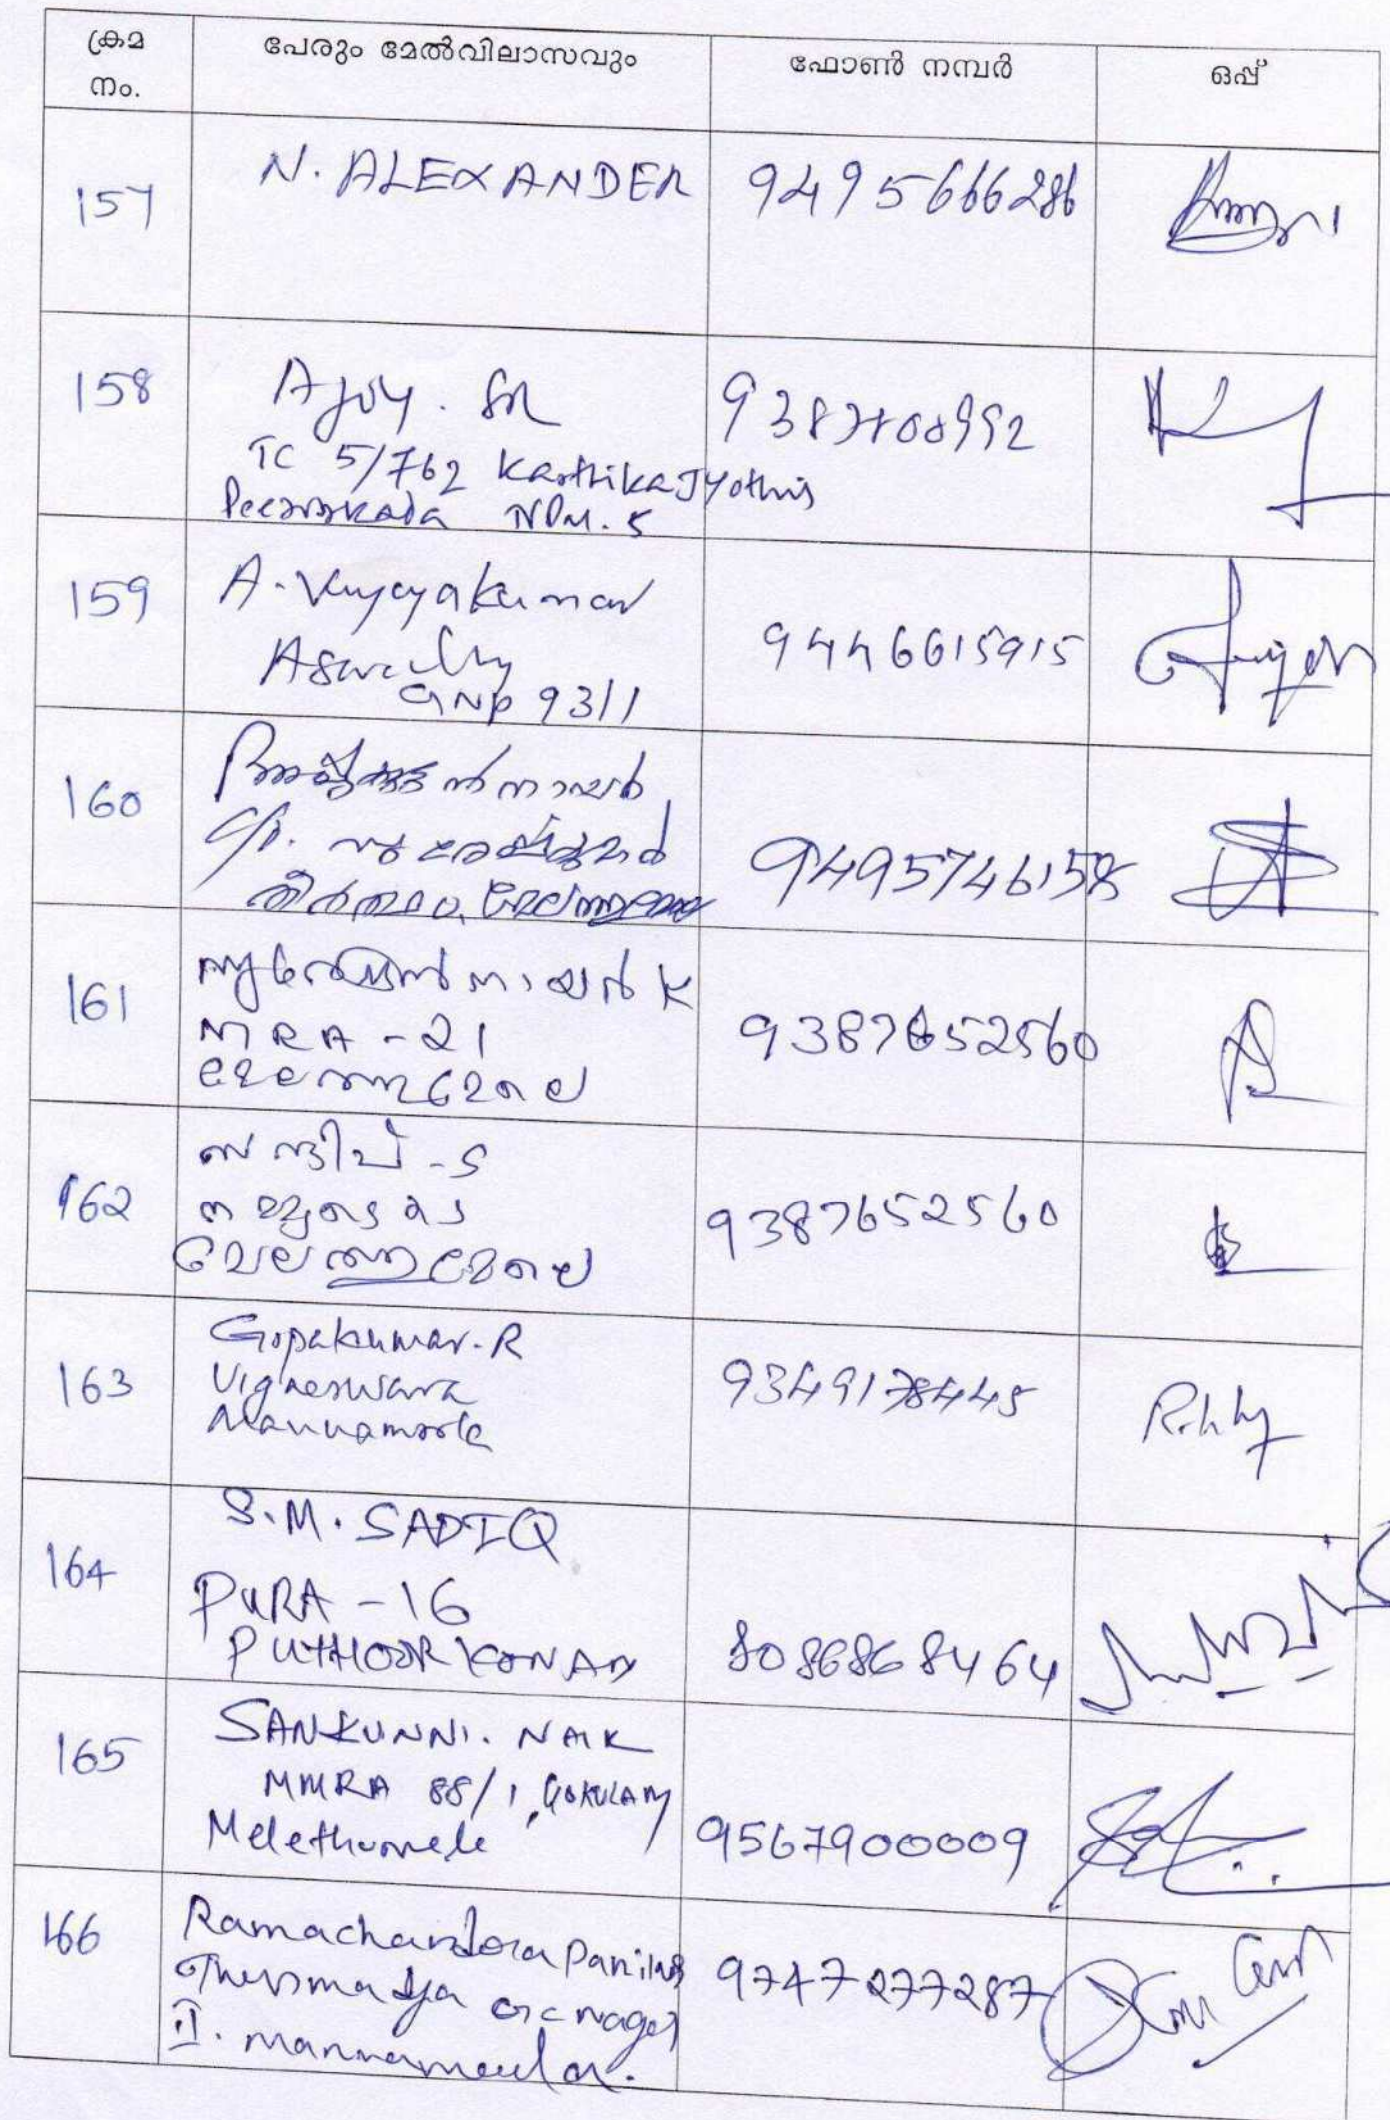 ക്രമ നം.
പേരും മേൽവിലാസവും
ഫോൺ നമ്പർ
ഒപ്പ്
157
N. ALEXANDER
9495666286
158
Ajoy. SR
TC 5/762 Karthika Jyothis
NDM. 5
159
A. Vijayakumar
GNP 93/1
9446615915
160
നായർ
C/o.
തീർത്ഥം,
161
നായർ K
MRA - 21
മേലത്തുമേലെ
162
സന്ദീപ് - S
മേലത്തുമേലെ
9387652560
163
Gopakumar. R
Vigneswara
Mannamoola
9349178445
164
S. M. SADIQ
PURA - 16
PUTHOORKONAM
8086868464
165
SANKUNNI. NAIR
MMRA 88/1, GOKULAM
Melethumele
9567900009
166
Ramachandra Panikar
GC nager
II. mannamoola.
9747277287